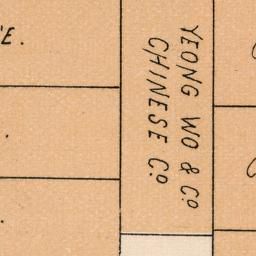 E.
YEONG WO & Cº
CHINESE Cº